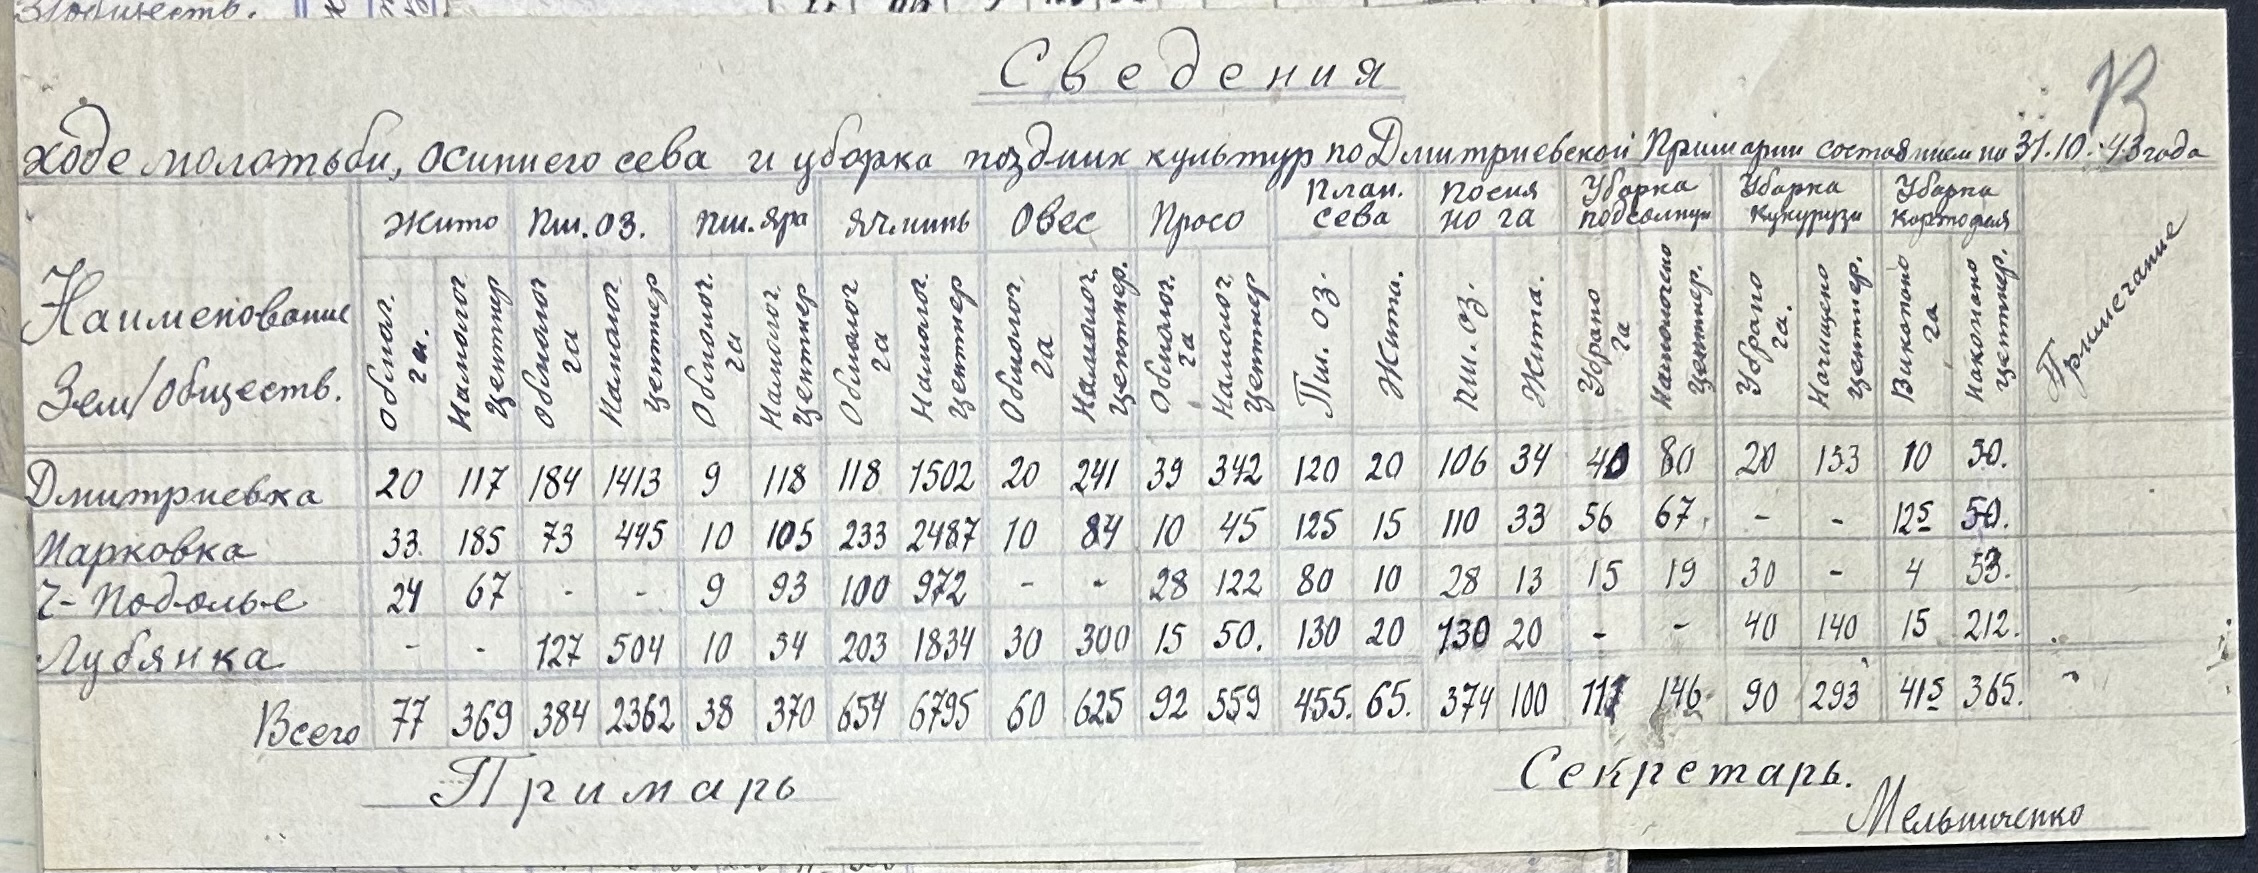 Сведения
ходе молотьби, осиннего сева и уборка поздних культур по Дмитриевской Примарии состоянием на 31.10.43 года
Наименование Зем/обществ. | Жито | Пш. оз. | Пш. яра | Ячминь | Овес | Просо | План. сева | Посияно га | Уборка подсолнуи | Уборка кукурузи | Уборка картофеля | Примечание
Обмол. га. | Намолог. центнер | Обмолог га | Намолог центнер | Обмолог. га | Намолог. центнер | Обмолог га | Намолог. центнер | Обмолог. га | Намолог. центнер. | Обмолог. га | Намолог. центнер | Пш. оз. | Жита. | Пш. оз. | Жита. | Убрано га | Намолочено центнер. | Убрано га. | Начищено центнер. | Викопано га | Накопано центнер.
Дмитриевка 20 117 184 1413 9 118 118 1502 20 241 39 342 120 20 106 34 40 80 20 153 10 50.
Марковка 33 185 73 445 10 105 233 2487 10 84 10 45 125 15 110 33 56 67 - - 125 50.
Ч-Подолье 24 67 - - 9 93 100 972 - - 28 122 80 10 28 13 15 19 30 - 4 53.
Лубянка - - 127 504 10 54 203 1834 30 300 15 50. 130 20 130 20 - - 40 140 15 212.
Всего 77 369 384 2362 38 370 654 6795 60 625 92 559 455. 65. 374 100 111 146 90 293 415 365.
Примарь
Секретарь.
Мельниченко